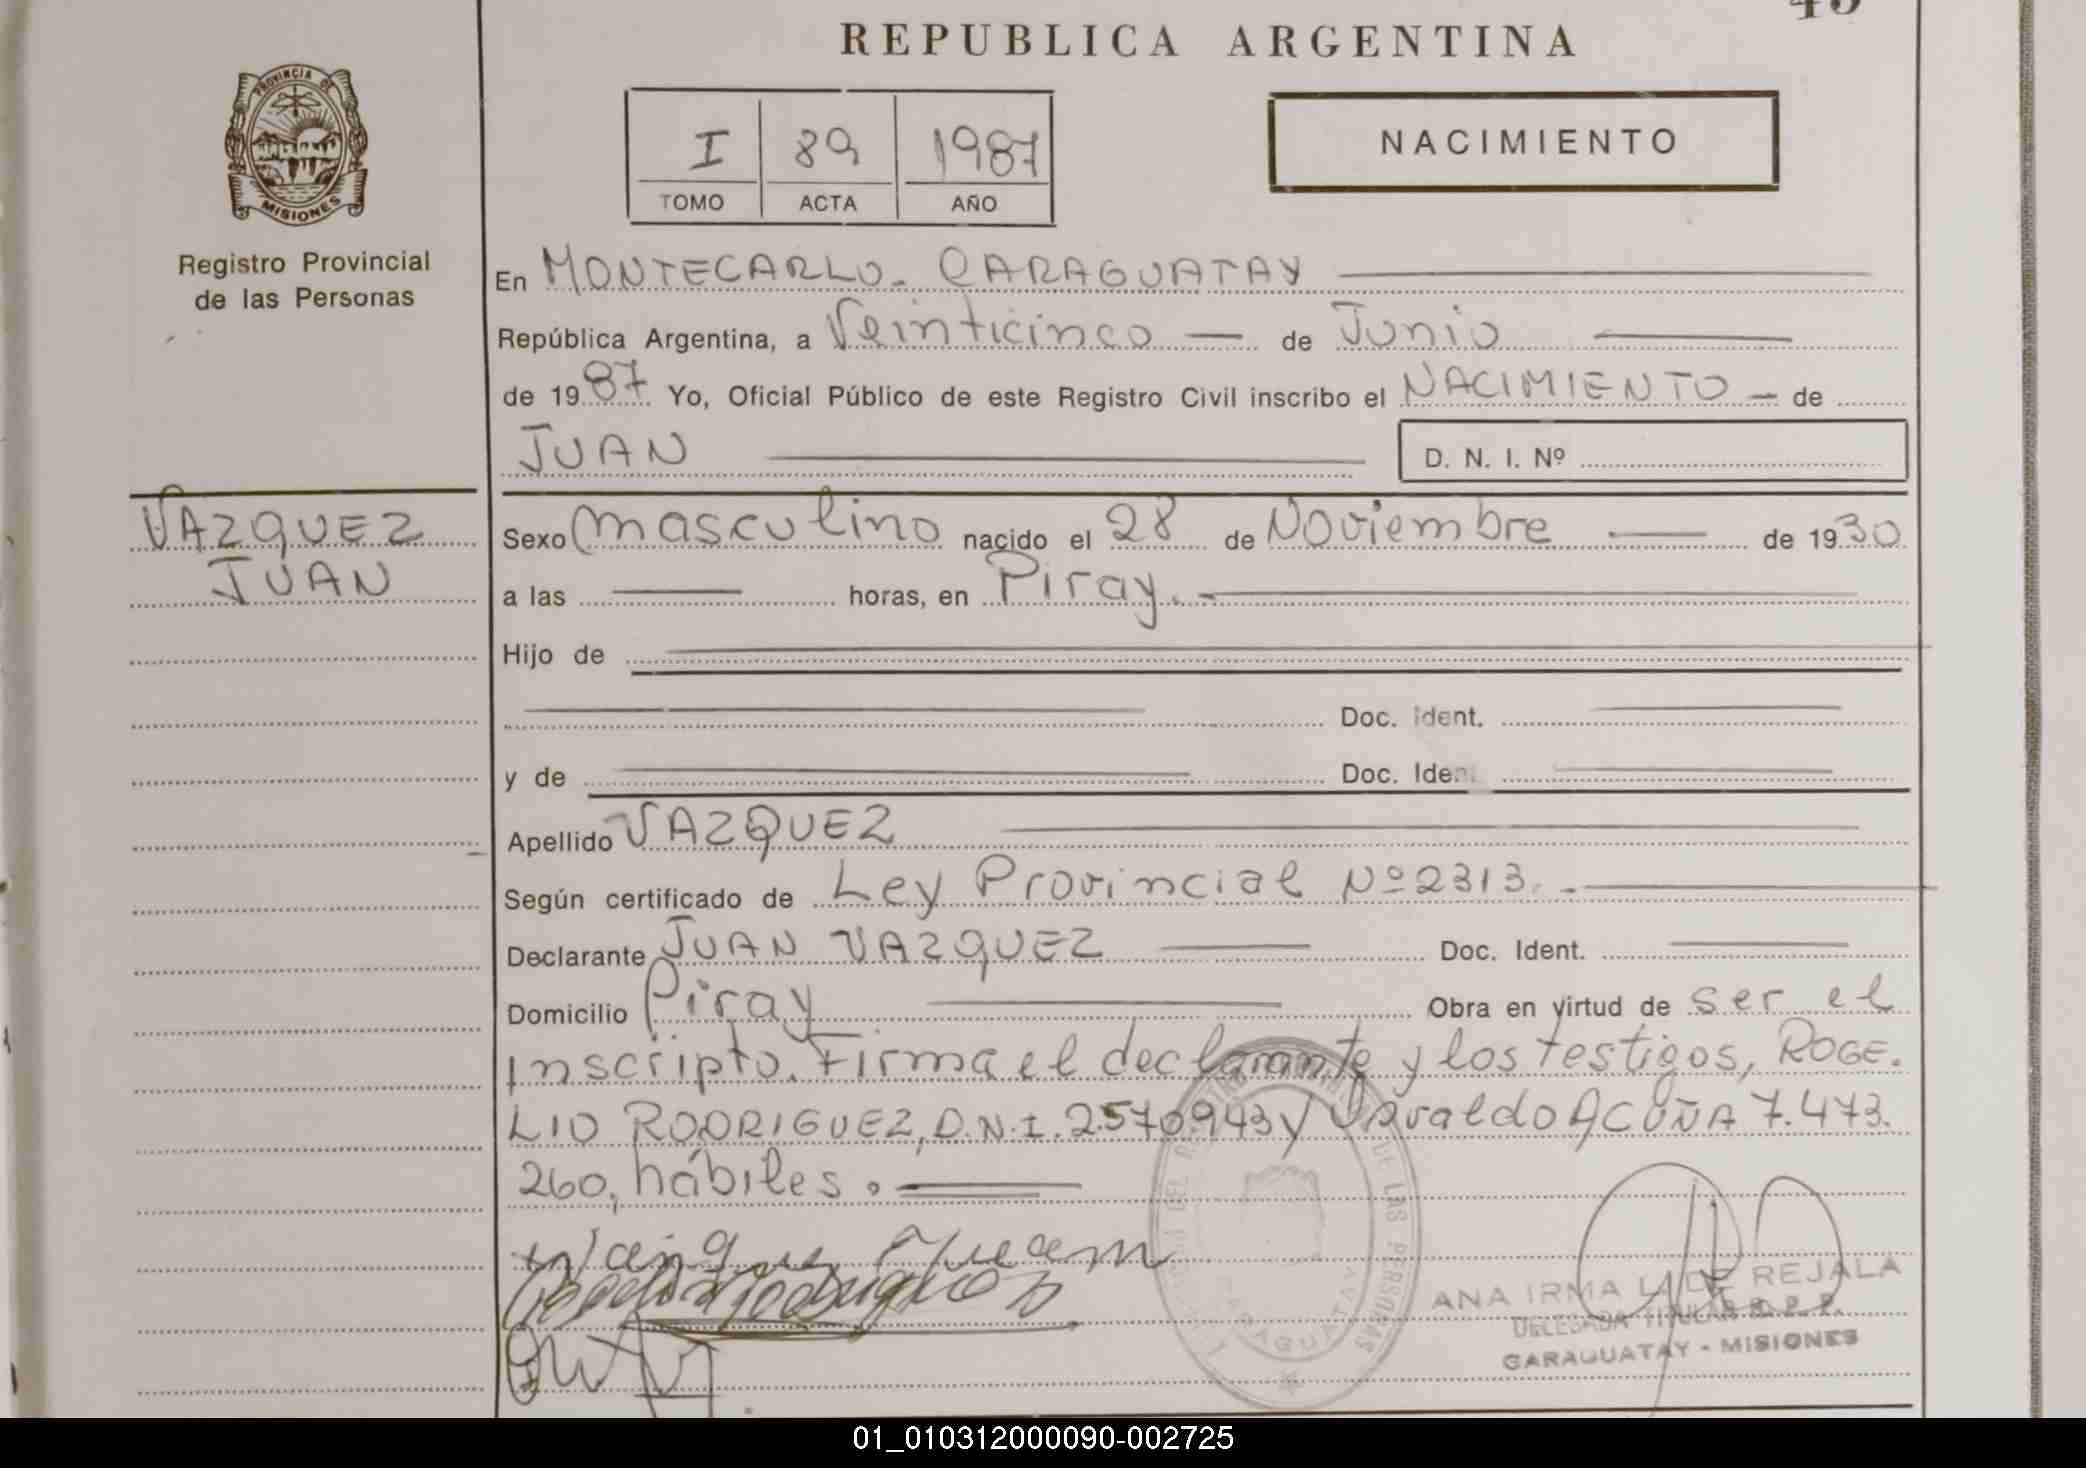 45
REPUBLICA ARGENTINA
PROVINCIA DE
MISIONES
Registro Provincial
de las Personas
I 89 1987
TOMO ACTA AÑO
NACIMIENTO
En MONTECARLO - CARAGUATAY
República Argentina, a Veinticinco — de Junio
de 1987 Yo, Oficial Público de este Registro Civil inscribo el NACIMIENTO — de
JUAN
D. N. I. Nº
VAZQUEZ
JUAN
Sexo masculino nacido el 28 de Noviembre — de 1930
a las — horas, en Piray. -
Hijo de
Doc. Ident.
y de Doc. Ident.
Apellido VAZQUEZ
Según certificado de Ley Provincial Nº 2313. -
Declarante JUAN VAZQUEZ — Doc. Ident.
Domicilio Piray — Obra en virtud de ser el
inscripto. Firma el declarante y los testigos, ROGE.
LIO RODRIGUEZ, D.N.I. 2570943 y Osvaldo ACUÑA 7.473.
260, hábiles.
ANA IRMA L. DE REJALA
DELEGADA TITULAR R. P. P.
CARAGUATAY - MISIONES
DE LAS PERSONAS
CARAGUATAY
01_010312000090-002725